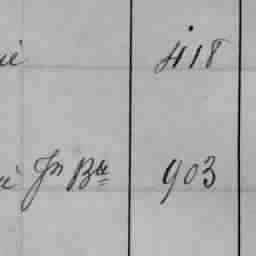 418
Jn Bte 903